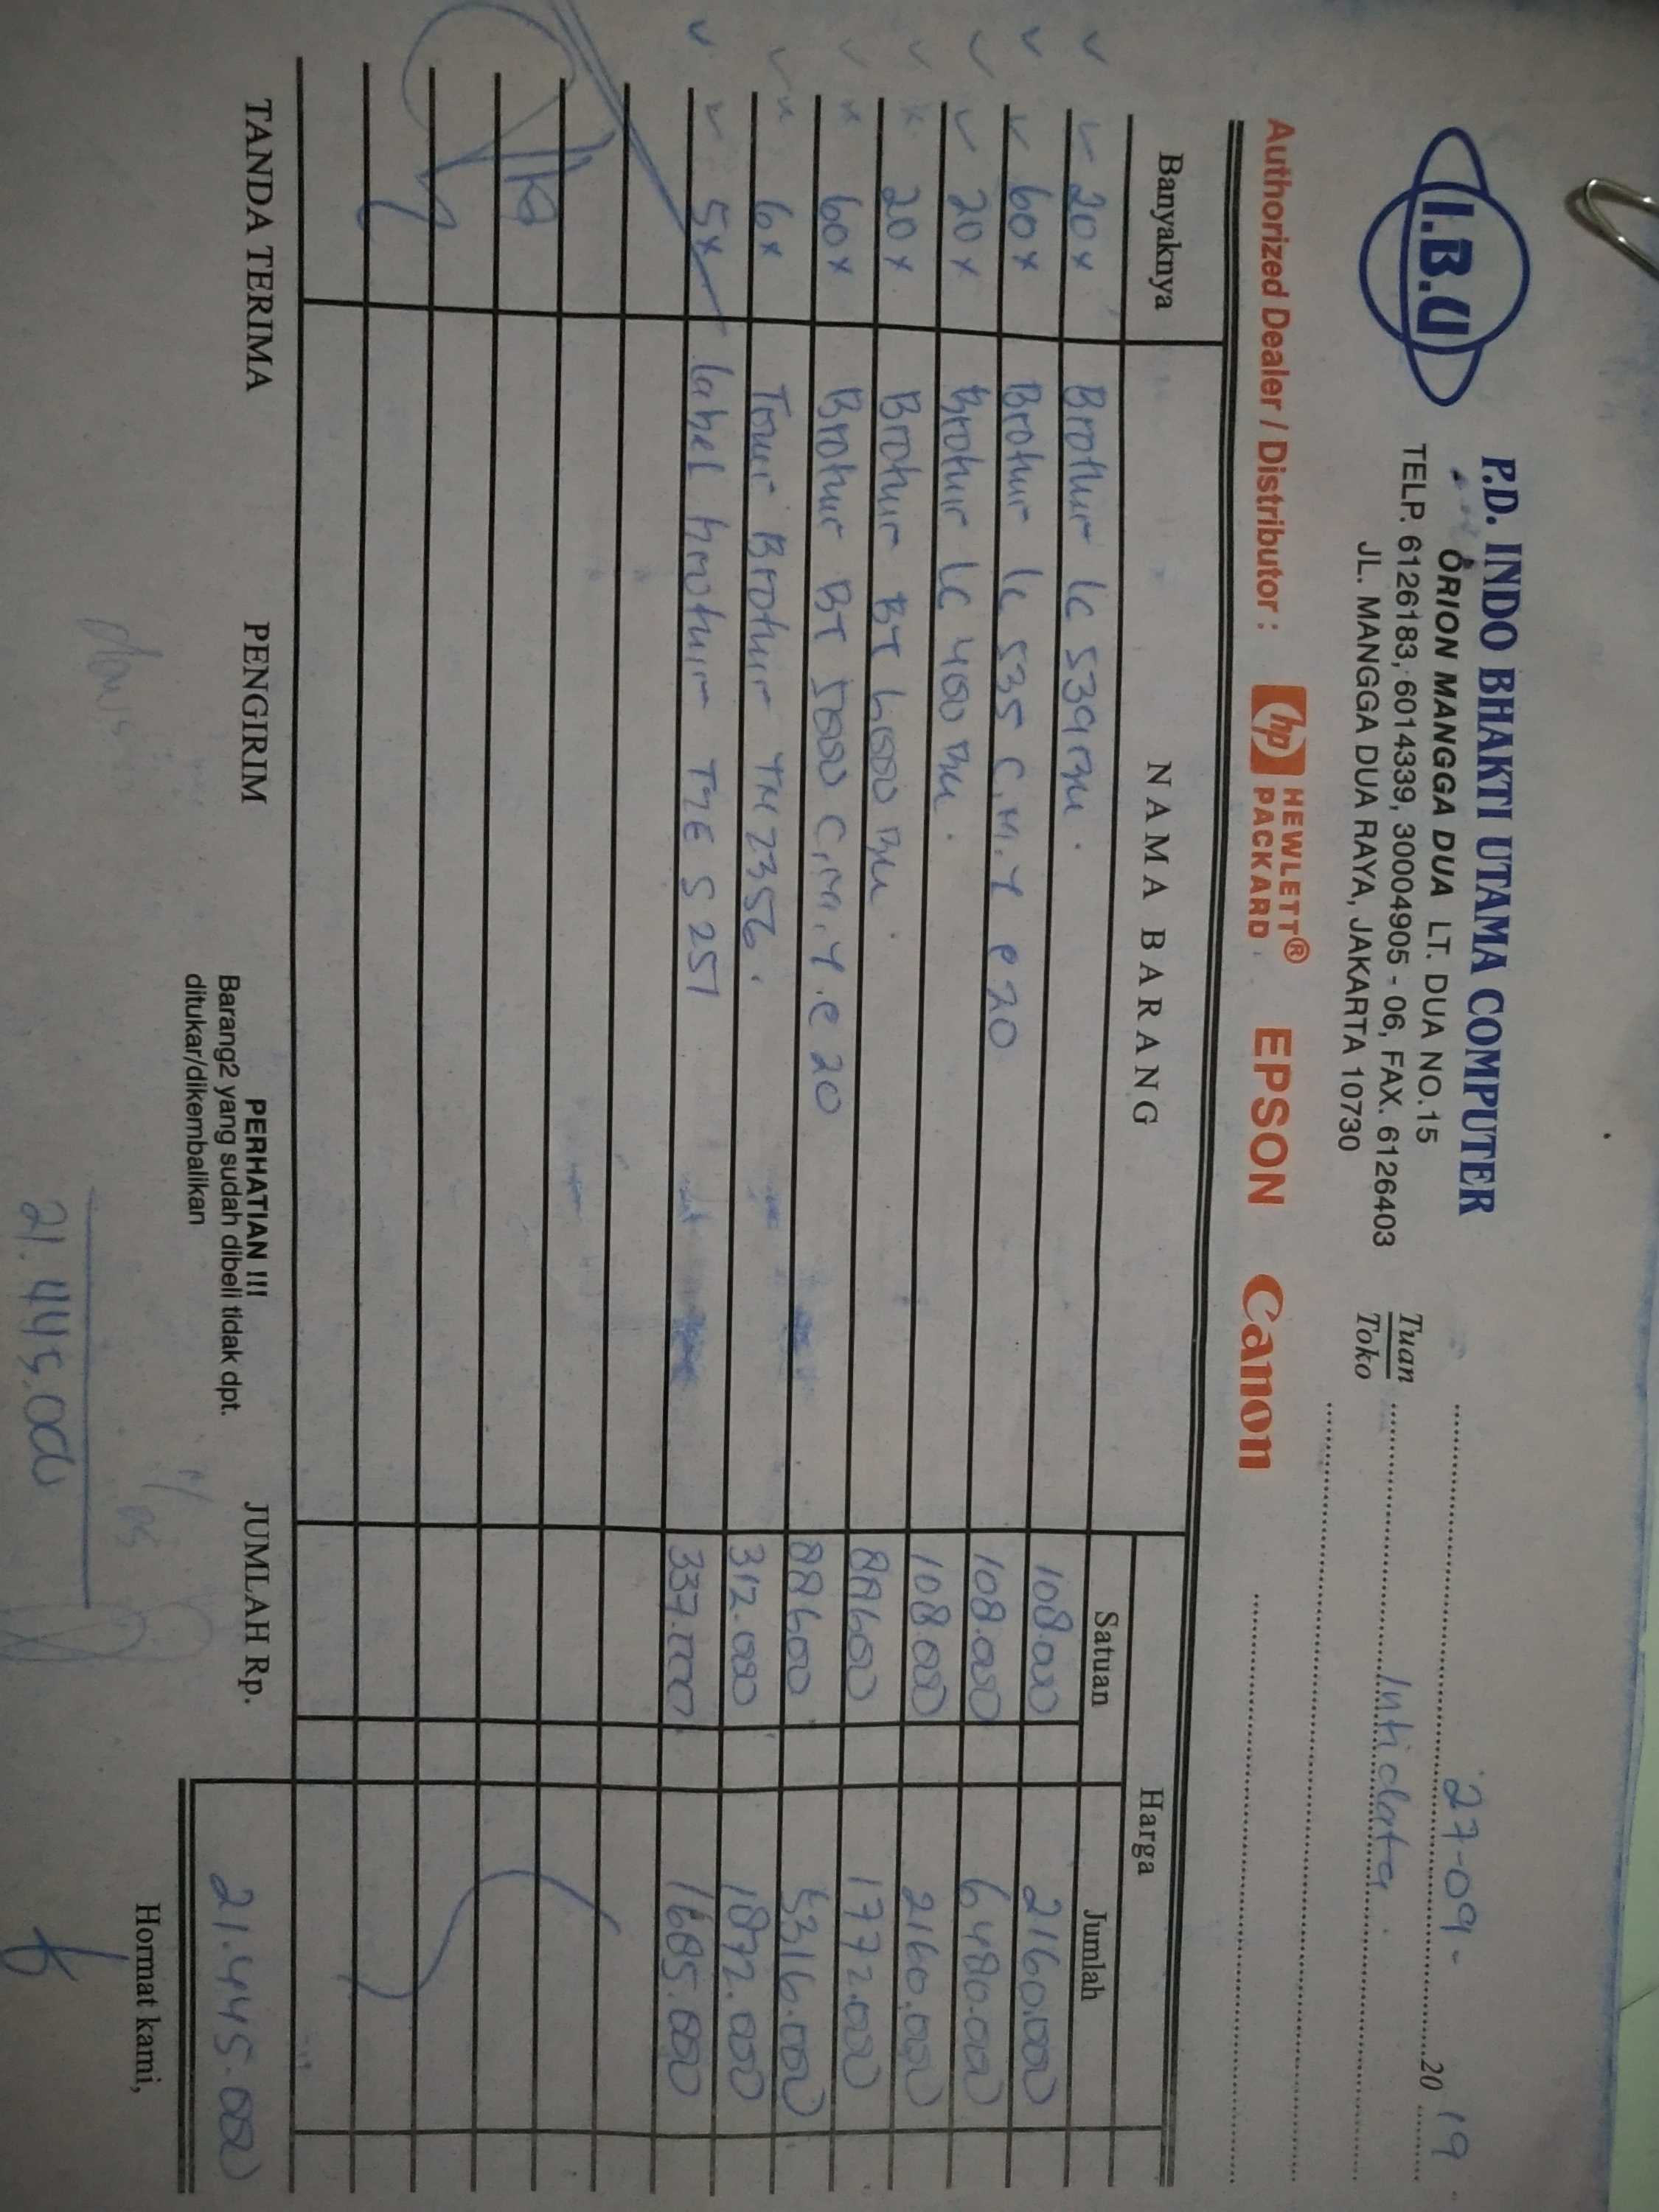 I.B.U
P.D. INDO BHAKTI UTAMA COMPUTER
ORION MANGGA DUA LT. DUA NO.15
TELP. 6126183, 6014339, 30004905 - 06, FAX. 6126403
JL. MANGGA DUA RAYA, JAKARTA 10730
27-09- 20 19
Tuan
Toko
Intidata.
Authorized Dealer / Distributor : hp HEWLETT® PACKARD EPSON Canon
Banyaknya NAMA BARANG Harga
Satuan Jumlah
20 x Brother LC 539 BK. 108.000 2160.000
60 x Brother LC 535 C.M.Y @ 20 108.000 6480.000
20 x Brother LC 400 BK. 108.000 2160.000
20 x Brother BT 6000 BK 88600 1772.000
60 x Brother BT 5000 C.M.Y.@ 20 88600 5316.000
6 x Toner Brother TN 2356. 312.000 1872.000
5 x label brother TZE S 251 337.000 1685.000
TANDA TERIMA PENGIRIM
PERHATIAN !!!
Barang2 yang sudah dibeli tidak dpt.
ditukar/dikembalikan
JUMLAH Rp. 21.445.000
Hormat kami,
21.445.000